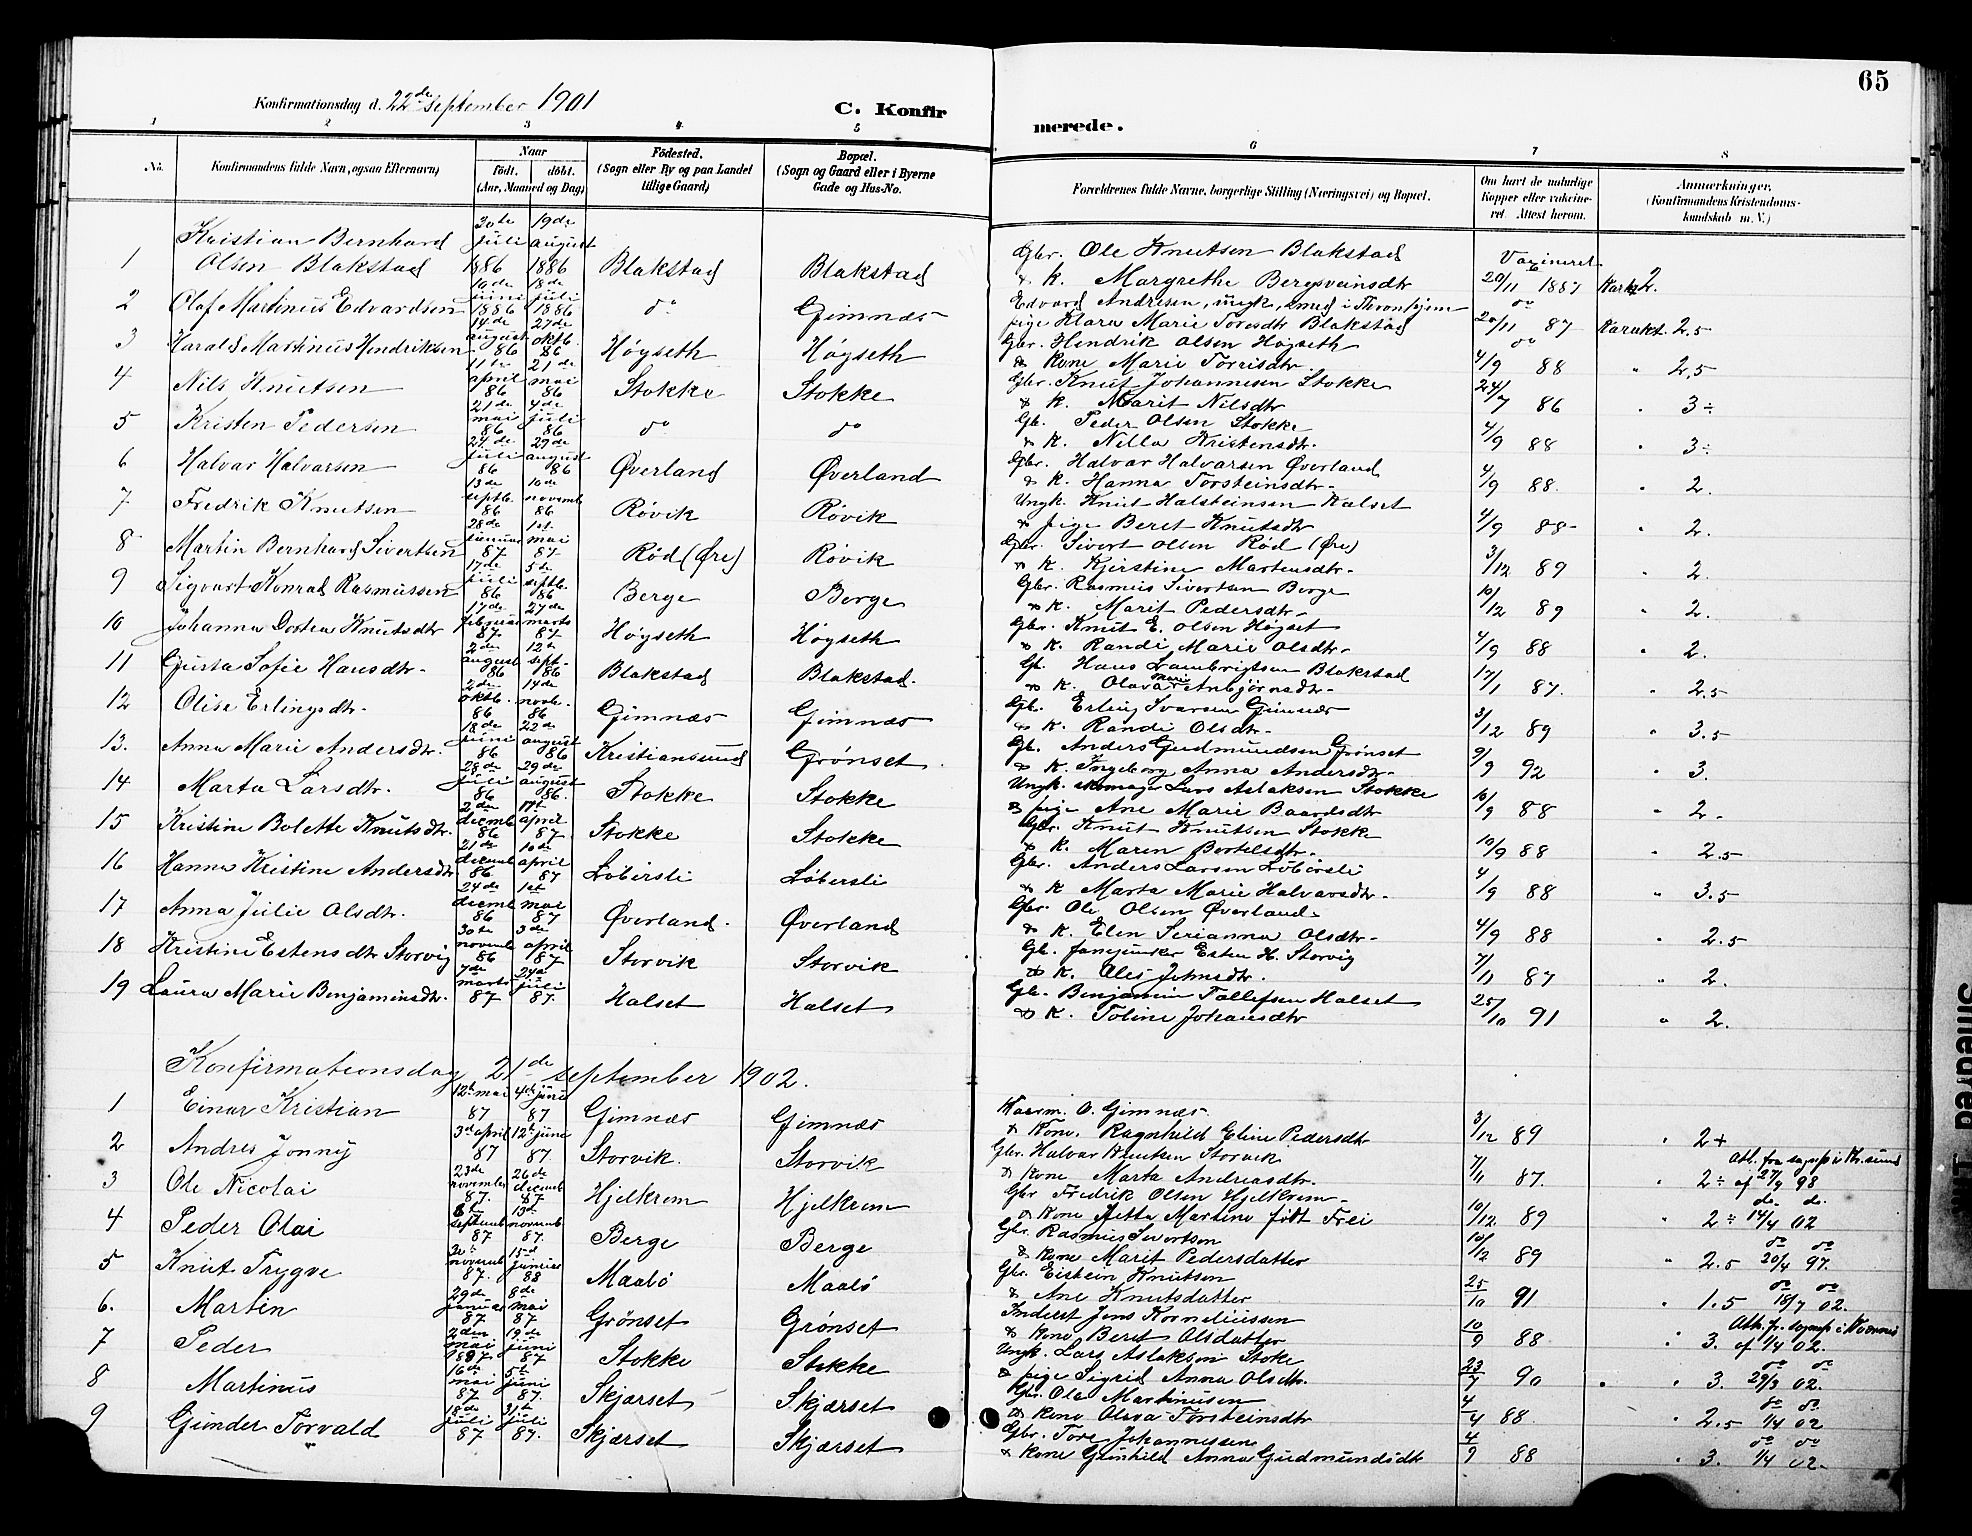 65
Konfirmationsdag d. 22de september 1901
C. Konfirmerede.
1 2 3 4 5 6 7 8
No.
Konfirmandens fulde Navn, ogsaa Efternavn)
Naar
født. døbt.
(Aar, Maaned og Dag)
Fødested.
(Sogn eller By og paa Landet tillige Gaard)
Bopæl.
(Sogn og Gaard eller i Byerne Gade og Hus-No.
Forældrenes fulde Navne, borgerlige Stilling (Næringsvei) og Bopæl.
Om havt de naturlige Kopper eller vaccineret. Attest herom.
Anmærkninger.
(Konfirmandens Kristendomskundskab m. V.)
1 Kristian Bernhard Olsen Blakstad 30de juli 1886 19de august 1886 Blakstad Blakstad Gbr. Ole Knutsen Blakstad & K. Margrethe Bergsveinsdtr 20/11 1887 2.
2 Olaf Martinus Edvardsen 10de juni 1886 18de juli 1886 do Gimnæs Edvard Andresen, ungk, smed i Throndhjem pige Klara Marie Toresdtr Blakstad 20/11 87 Karakt. 2.5
3 Harald Martinus Hendriksen 14de august 86 27de oktb. 86 Høgseth Høgseth Gbr. Hendrik Olsen Høgseth & Kone Marie Torrisdtr. 4/9 88 " 2,5
4 Nils Knutsen 11te april 86 21de mai 86 Stokke Stokke Gbr. Knut Johannesen Stokke & K. Marit Nilsdtr 24/7 86 " 3÷
5 Kristen Pedersen 21de mai 86 4de juli 86 do do Gb. Peder Olsen Stokke & K. Nella Kristensdtr. 4/9 88 " 3÷
6 Halvar Halvarsen 27de juli 86 29de august 86 Øverland Øverland Gbr. Halvar Halvarsen Øverland & K. Hanna Torsteinsdtr- 4/9 88. " 2.
7 Fredrik Knutsen 13de septb. 86 10de novemb 86 Røvik Røvik Ungk. Knut Halsteinsen Kalset & pige Beret Knutsdtr 4/9 88- " 2.
8 Martin Bernhard Sivertsen 28de januar 87 1st mai 87 Rød (Øre) Røvik Gbr. Sivert Olsen Rød (Øre) & K. Kjerstine Martensdtr- 3/12 89 " 2.
9 Sigvart Konrad Rasmussen 17de juli 86 5te septb. 86 Berge Berge Gbr. Rasmus Sivertsen Berge & K. Marit Pedersdtr- 10/12 89 " 2.
10 Johanna Dortea Knutsdtr 17de februar 87 27de marts 87 Høgseth Høgseth Gbr. Knut E. Olsen Høgset & K. Randi Marie Olsdtr- 4/9 88 " 2.
11 Gusta Sofie Hansdtr- 2de august 86 12te sept- 86 Blakstad Blakstad. Gb. Hans Lambrigtsen Blakstad & K. Olava Marie Anbjørnsdtr- 17/1 87. " 2.5
12 Olise Erlingsdtr- 2de oktb. 86 14de novb. 86 Gimnæs Gimnæs Gb. Erling Ivarsen Gimnæs & K. Randi Olsdtr- 3/12 89 " 3.5
13. Anna Marie Andersdtr. 18de juni 86 22de august 86 Kristiansund Grønset Gb. Anders Gudmundsen Grønset & K. Ingeborg Anna Andersdtr- 9/9 92 " 3.
14 Marta Larsdtr. 28de juli 86 29de august 86. Stokke Stokke Ungk. skomager Lars Aslaksen Stokke & pige Ane Marie Baardsdtr 10/9 88 " 2-
15 Kristine Bolette Knutsdtr. 2den decemb 86 17te april 87 Stokke Stokke Gbr. Knut Knutsen Stokke & K. Maren Bertelsdtr- 10/9 88 " 2.5
16 Hanna Kristine Andersdtr 21de decemb 86 10de april 87 Løbersli Løbersli Gbr. Anders Larsen Løbersli & K Marta Marie Halvarsdtr- 4/9 88 " 3.5
17 Anna Julie Olsdtr. 24de decmb 86 1st mai 87 Øverland. Øverland Gbr. Ole Olsen Øverland- & K. Elen Serianna Olsdtr- 4/9 88 " 2.5
18 Kristine Estensdtr Storvig 30te novemb 86 3de april 87 Storvik Storvik Gb. fanejunker Esten H. Storvig & K. Ales Johnsdtr. 7/11 87 " 2.
19 Laura Marie Benjaminsdtr. 7de marts 87 24de juli 87. Halset Halset Gb. Benjamin Tollefsen Halset & K. Toline Johansdtr 25/10 91 " 2.
Konfirmationsdag 21de september 1902.
1 Einar Kristian 12te mai 87 4de juni 87 Gimnæs Gimnæs O. Gimnæs & Kone. Ragnhild Eline Pedersdtr 3/12 89 " 2+
2 Andres Jonny 3de april 87 12te june 87 Storvik. Storvik Gbr. Halvar Knutsen Storvik & Kone Marta Andreasdtr. 7/11 87. " 2÷ Att. fra sognep i Kr.sund af 27/9 98
3 Ole Nicolai 23de november 87. 26de decemb 87 Hjelkrem Hjelkrem Gbr Fredrik Olsen Hjelkrem- & Kone Jetta Martine født Frei 10/12 89 " 2÷ de de. 14/4 02
4 Peder Olai 8de septemb 87 13de novemb 87. Berge Berge Gb. Rasmus Sivertsen & Kone Marit Pedersdatter 10/12 89 " 2.5 do do 20/4 97.
5 Knut Trygve 30te novemb 87. 15de januar 88 Maalø Maalø Gbr. Eistein Knutsen & Ane Knutsdatter 25/10 91 " 1.5 do do 18/7 02.
6. Martin 29de januar 87 8de mai 87 Grønset Grønset Inderst Jens Korneliussen & Kone Beret Olsdatter 10/9 88. " 3. Att. f. sognep i Kvernes af 1/4 02.
7 Peder 2den mai 1887 19de juni 87 Stokke Stokke Ungk. Lars Aslaksen Stoke & pige Sigrid Anna Olsdtr. 23/7 90 " 3. do do 29/3 02.
8 Martinus 16de mai 87 5te juni 87. Skjærset Skjærset Gb. Ole Martinusen & Kone Olava Torsteinsdtr 4/4 88. " 2.5 do do 1/4 02
9 Gunder Torvald 18de juli 87 31te juli 87. Skjærset Skjærset Gbr. Tore Johannessen & Kone Gunhild Anna Gudmundsdtr 4/9 88 " 3. do do 1/4 02.